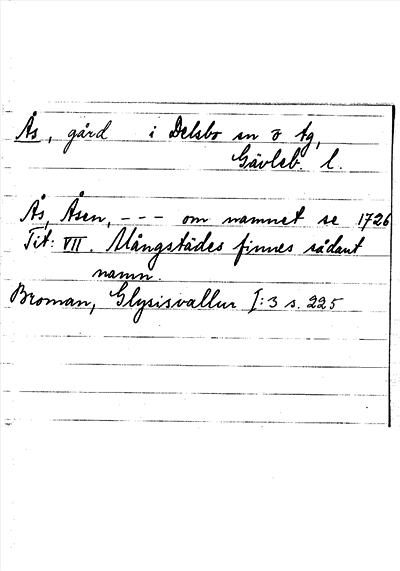 Ås, gård i Delsbo sn o tg,
Gävleb. l.
Ås, Åsen, --- om namnet se 1726
Tit: VII. Mångstädes finnes sådant
namn.
Broman, Glysisvallur I:3 s. 225